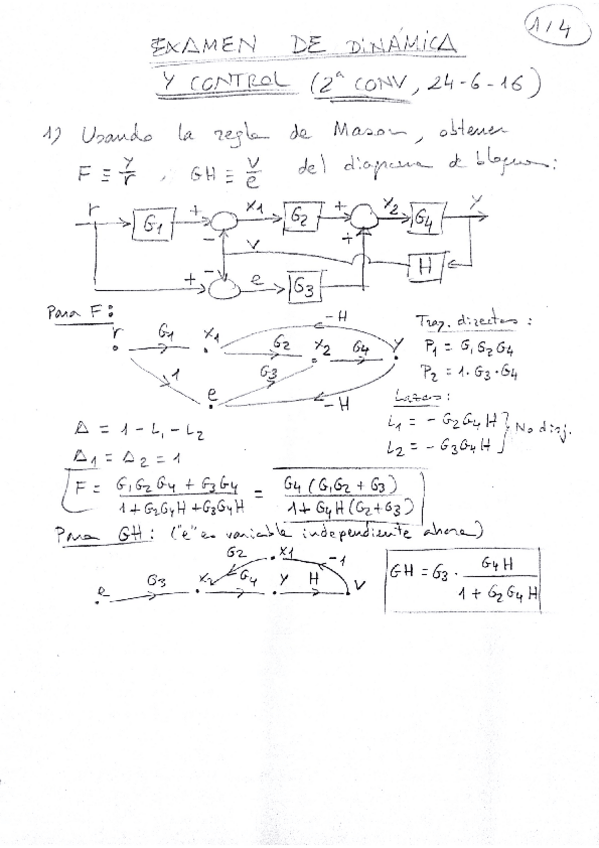 1/4
EXAMEN DE DINÁMICA
Y CONTROL (2ª CONV, 24-6-16)
1) Usando la regla de Mason, obtener
F ≡ y/r , GH ≡ v/e del diagrama de bloques:
r G1 + - x1 G2 + + x2 G4 y
v H
+ - e G3
Para F:
r G1 x1 G2 x2 G4 y -H
1 e G3 -H
Tray. directas:
P1 = G1G2G4
P2 = 1·G3·G4
Lazos:
L1 = -G2G4H } No disj.
L2 = -G3G4H
Δ = 1 - L1 - L2
Δ1 = Δ2 = 1
F = (G1G2G4 + G3G4)/(1+G2G4H+G3G4H) = G4(G1G2+G3)/(1+G4H(G2+G3))
Para GH: ("e" es variable independiente ahora)
e G3 x2 G4 y H v -1 x1 G2
GH = G3 · G4H/(1+G2G4H)